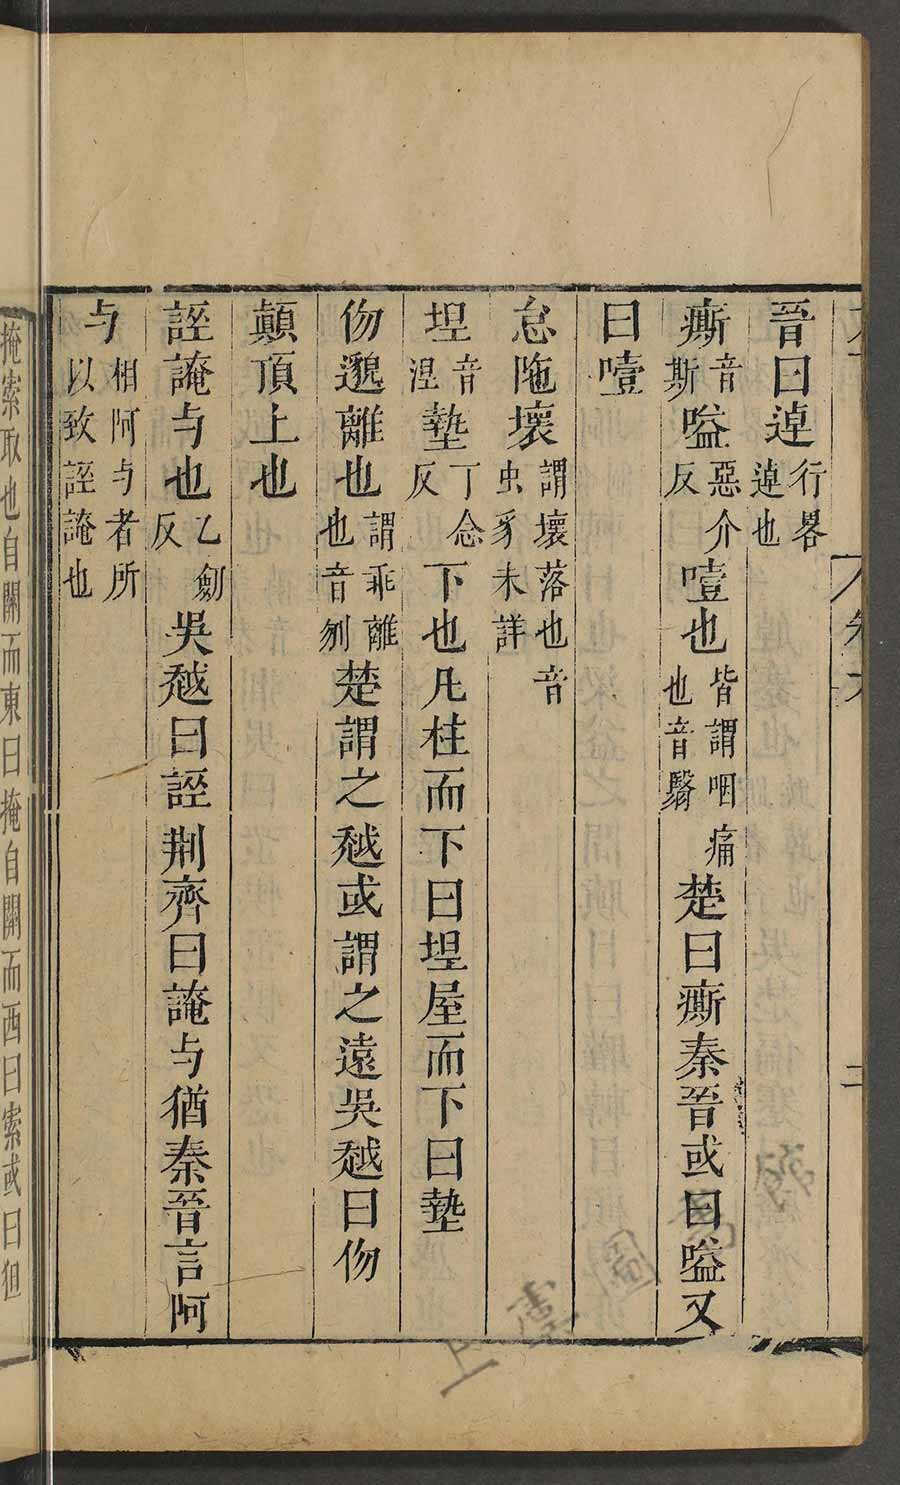 晉曰逴行畧逴也
廝音斯嗌惡介反噎也皆謂咽痛也音翳楚曰廝秦晉或曰嗌又
曰噎
怠陁壞謂壞落也音虫豸未詳
埕音涅墊丁念反下也凡柱而下曰埕屋而下曰墊
伆邈離也謂乖離也音刎楚謂之越或謂之遠吳越曰伆
顚頂上也
誣䛳与也乙劒反吳越曰誣荆齊曰䛳与猶秦晉言阿
与相阿与者所以致誣䛳也
掩索取也自關而東曰掩自關而西曰索或曰狚